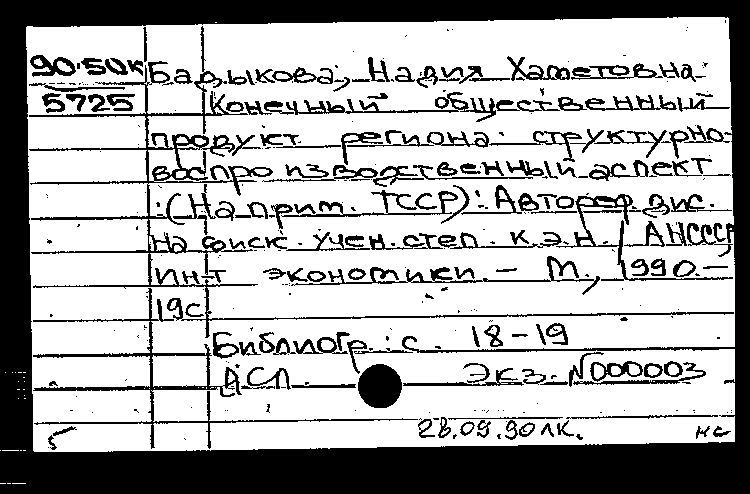 90.50к Бадыкова, Надия Хаметовна
5725 Конечный общественный
продукт региона: структурно-
воспроизводственный аспект
: (На прим. ТССР): Автореф. дис.
на соиск. учен. степ. к.э.н. / АН СССР
Ин-т экономики. – М., 1990. –
19с
Библиогр.: с. 18-19
ДСП. Экз. N000003
5 28.09.90 лк. нс